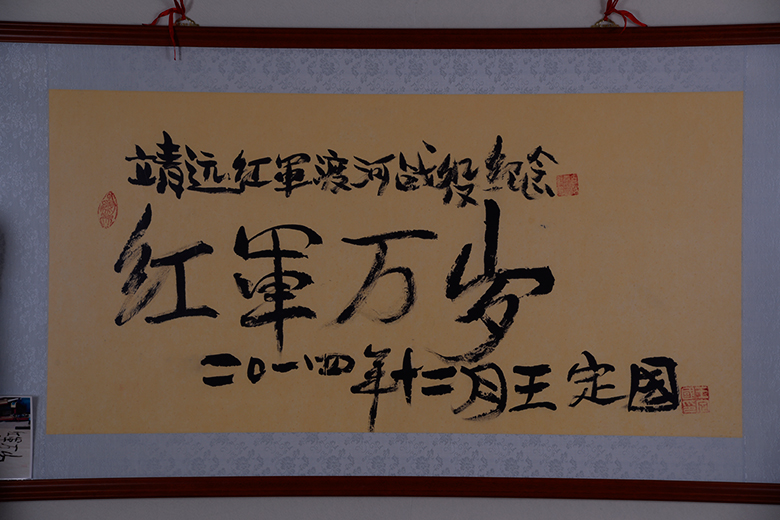 靖远红軍渡河战役纪念
红軍万岁
二〇一四年十二月王定國